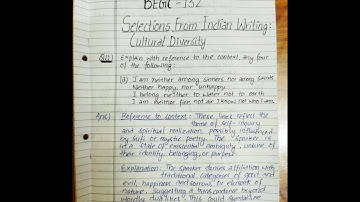 BEGC - 132
Selections From Indian Writing:
Cultural Diversity
Explain with reference to the context, any four
of the following:
(a) I am neither among sinners nor among saints
Neither happy, nor unhappy
I belong neither to water not to earth
I am neither fire not air I know not who I am
Reference to context: These lines reflect the
theme of self-inquiry
and spiritual realization, possibly influenced
by Sufi or mystic poetry. The speaker is
in a state of existential ambiguity, of
their identity, belonging, or purpose.
Explanation: The speaker denies affiliation with
traditional categories of good and
evil, happiness and sorrow, or elements of
nature, suggesting a transcendence beyond
worldly dualities. This could